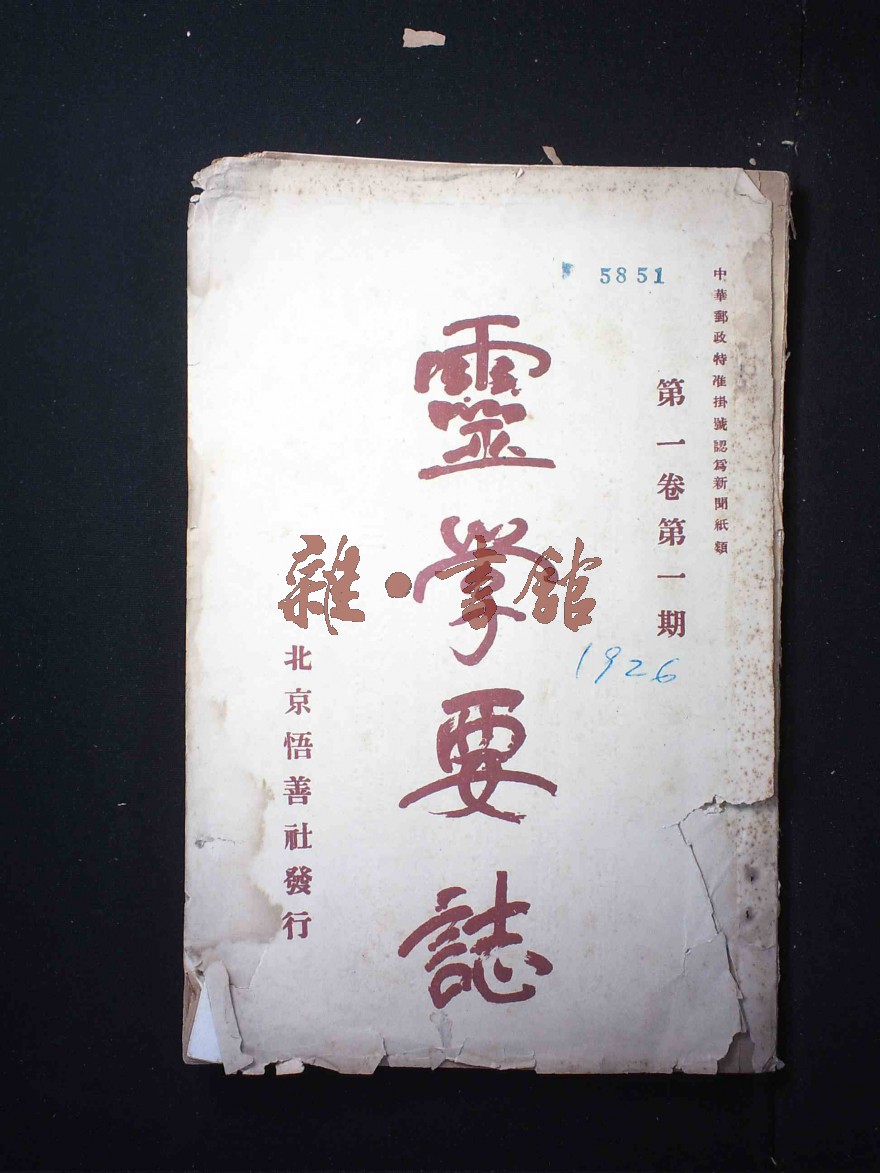 中華郵政特准掛號認爲新聞紙類
5851
第一卷第一期
1926
靈學要誌
雜·書館
北京悟善社發行